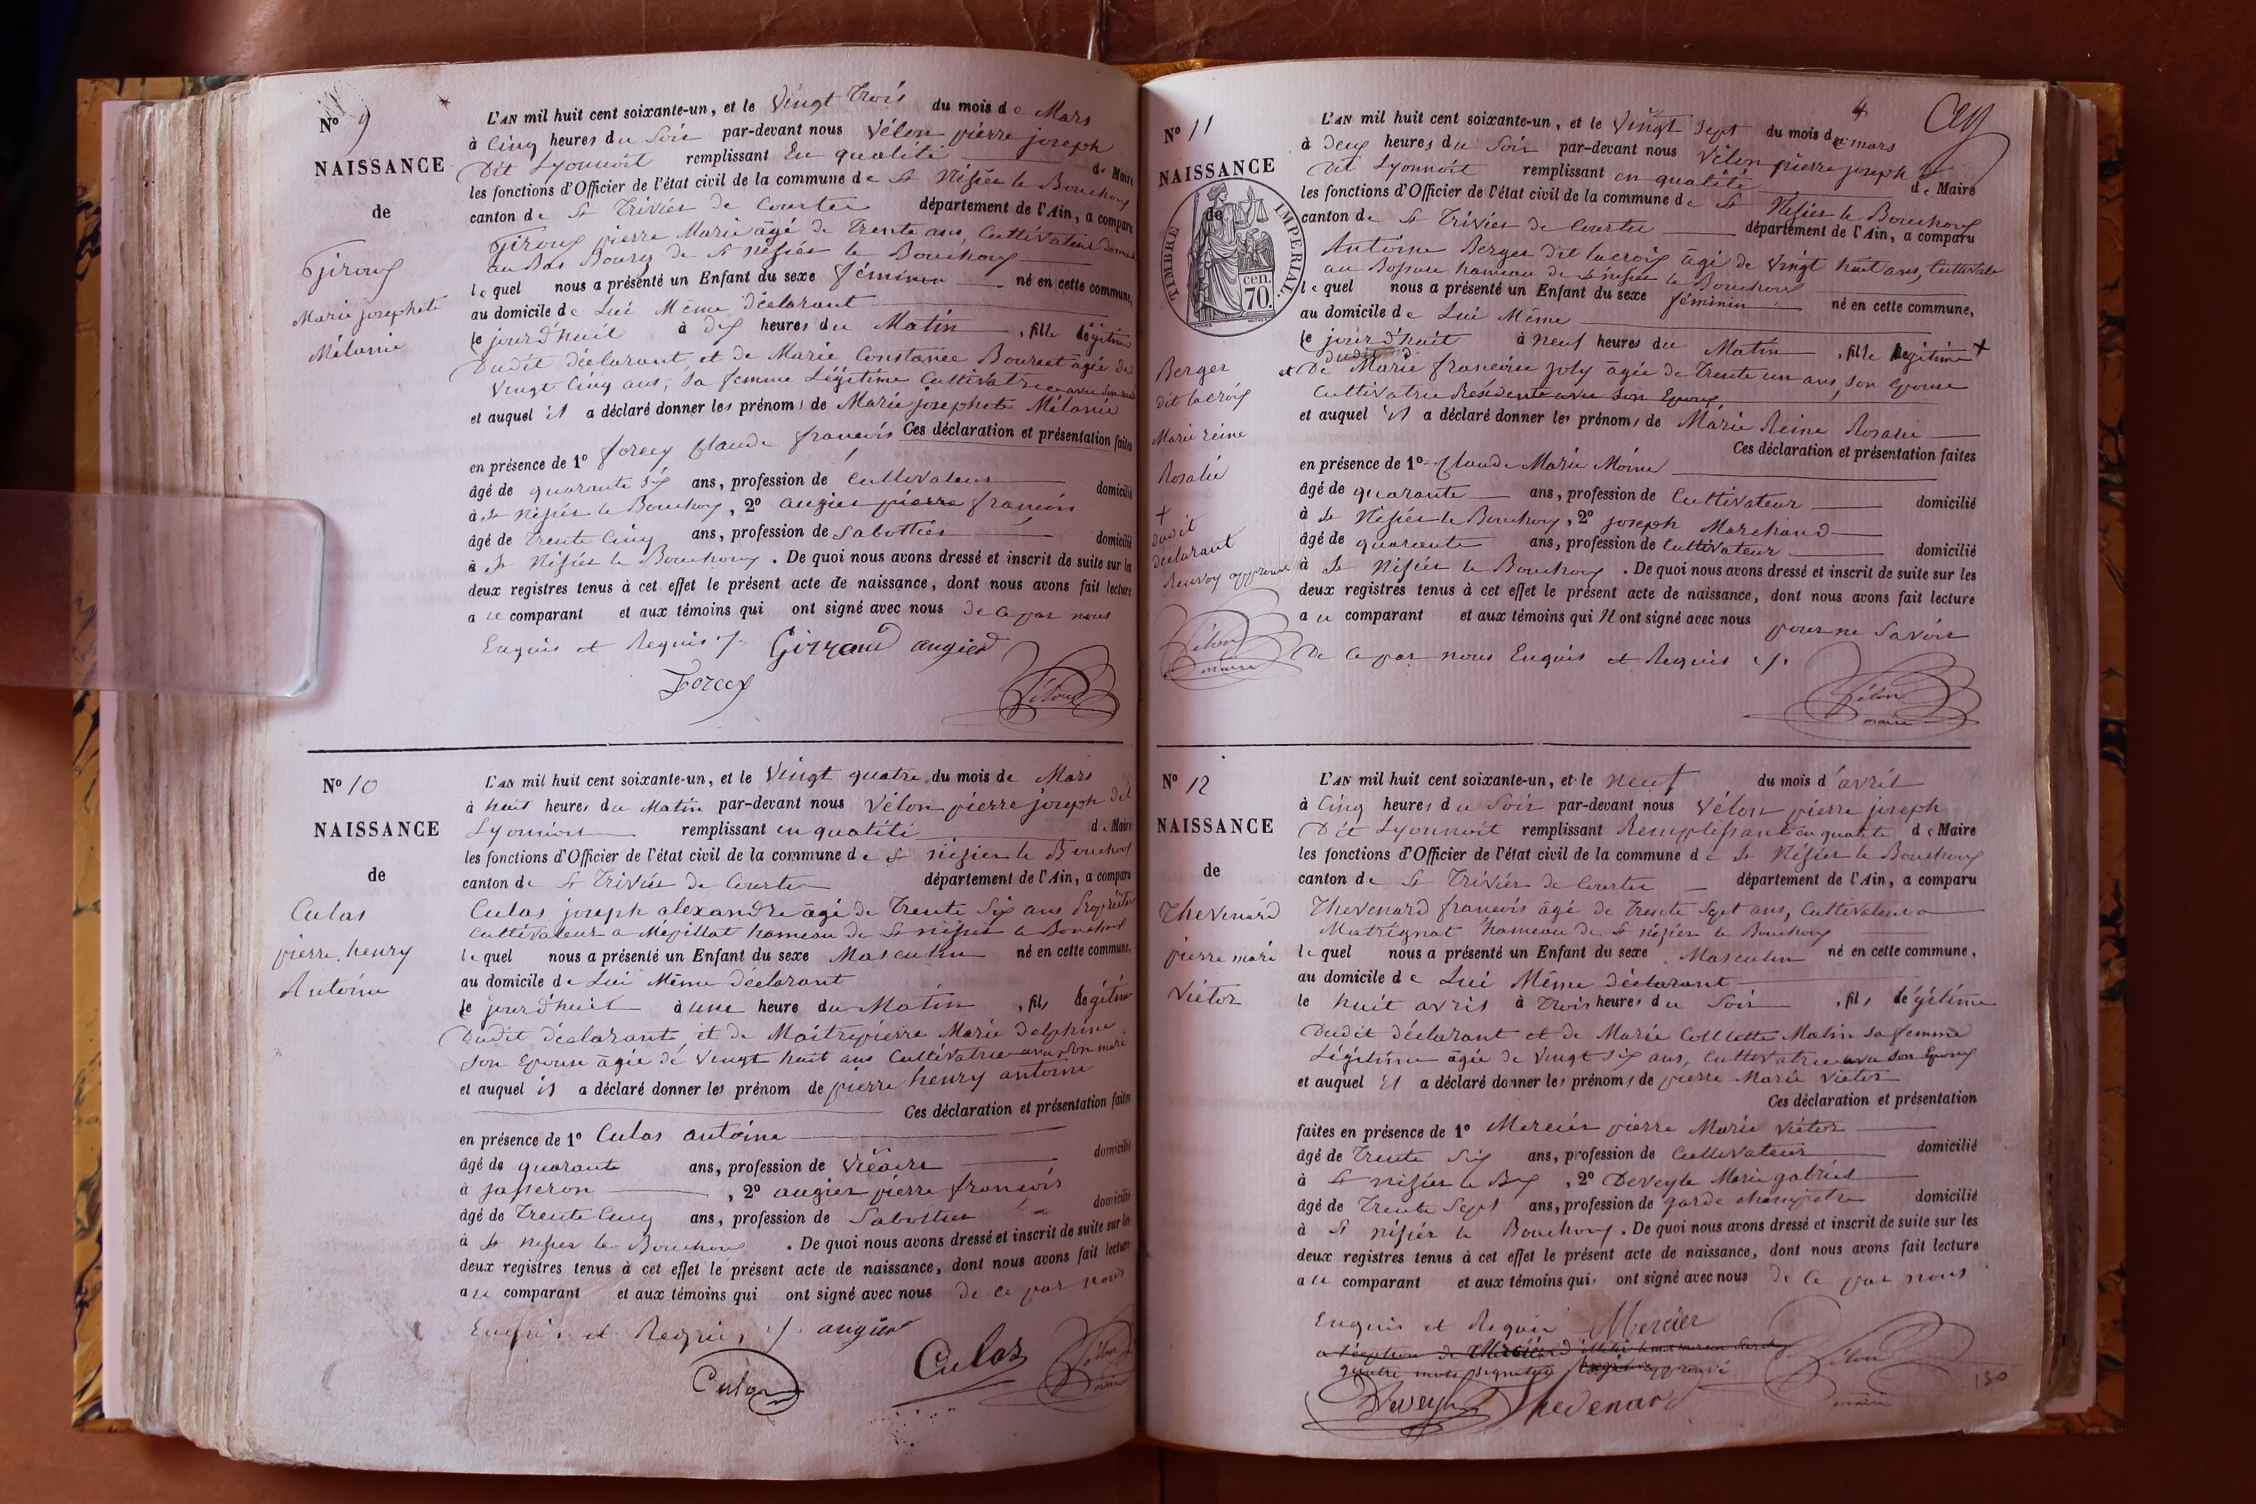 N° 9
NAISSANCE
de
Giroux
Marie josephete
Mélanie
L'AN mil huit cent soixante-un, et le Vingt Trois du mois de Mars
à Cinq heures du Soir par-devant nous Vélon pierre joseph
Dit Lyonnoit remplissant En qualité de Maire
les fonctions d'Officier de l'état civil de la commune de St Nifiér le Bouchoux
canton de St Triviér de Courtes département de l'Ain, a comparu
Giroux pierre Marie âgé de Trente ans, Cultivateur
au Bas Bourg de St Nifiér le Bouchoux
lequel nous a présenté un Enfant du sexe féminin né en cette commune,
au domicile de Lui Même déclarant
le jourd'huit à dix heures du Matin, fille légitime
Dudit déclarant, et de Marie Constance Bourset âgée de
Vingt Cinq ans, sa femme Légitime Cultivatrice avec son mari
et auquel il a déclaré donner les prénoms de Marie josephete Mélanie
Ces déclaration et présentation faites
en présence de 1° forey Claude françois
âgé de quarante Six ans, profession de Cultivateur domicilié
à St Nifiér le Bouchoux, 2° augier pierre françois
âgé de Trente Cinq ans, profession de Sabottiér domicilié
à St Nifiér le Bouchoux. De quoi nous avons dressé et inscrit de suite sur les
deux registres tenus à cet effet le présent acte de naissance, dont nous avons fait lecture
a ce comparant et aux témoins qui ont signé avec nous de ce par nous
Enquis et Requis
augier
Forey
Vélon
N° 10
NAISSANCE
de
Culas
pierre henry
Antoine
L'AN mil huit cent soixante-un, et le Vingt quatre du mois de Mars
à huit heures du Matin par-devant nous Vélon pierre joseph dit
Lyonnoit remplissant en qualité de Maire
les fonctions d'Officier de l'état civil de la commune de St Nifier le Bouchoux
canton de St Triviér de Courtes département de l'Ain, a comparu
Culas joseph alexandre âgé de Trente Six ans Propriétaire
Cultivateur a Mépillat hameau de St nifier le Bouchoux
lequel nous a présenté un Enfant du sexe Masculin né en cette commune,
au domicile de Lui Même déclarant
le jourd'huit à une heure du Matin, fils légitime
Dudit déclarant, et de Maitrepierre Marie Delphine
son Epouse âgée de Vingt huit ans Cultivatrice avec son mari
et auquel il a déclaré donner les prénom de pierre henry antoine
Ces déclaration et présentation faites
en présence de 1° Culas antoine
âgé de quarante ans, profession de Vicaire domicilié
à Jasseron, 2° augier pierre françois
âgé de Trente Cinq ans, profession de Sabottier domicilié
à St Nifier le Bouchoux. De quoi nous avons dressé et inscrit de suite sur les
deux registres tenus à cet effet le présent acte de naissance, dont nous avons fait lecture
a ce comparant et aux témoins qui ont signé avec nous de ce par nous
Enquis et Requis augier
Culas
Culas
Vélon
maire
4
N° 11
NAISSANCE
de
TIMBRE IMPERIAL.
70 cen.
Berger
dit lacroix
Marie reine
Rosalie
+
dudit
déclarant
Renvoy approuvé
Vélon
maire
L'AN mil huit cent soixante-un, et le Vingt Sept du mois de mars
à Deux heures du Soir par-devant nous Vélon pierre joseph
Dit Lyonnoit remplissant en qualité de Maire
les fonctions d'Officier de l'état civil de la commune de St Nifier le Bouchoux
canton de St Triviér de Courtes département de l'Ain, a comparu
Antoine Berger dit lacroix âgé de Vingt huit ans, Cultivateur
au hameau de St nifier le Bouchoux
lequel nous a présenté un Enfant du sexe féminin né en cette commune,
au domicile de Lui Même
le jourd'huit à neuf heures du Matin, fille légitime +
dudit
et De Marie françoise joly âgée de Trente un ans, son Epouse
Cultivatrice Résidente avec son Epoux,
et auquel il a déclaré donner les prénoms de Marie Reine Rosalie
Ces déclaration et présentation faites
en présence de 1° Claude Marie Moine
âgé de quarante ans, profession de Cultivateur domicilié
à St Nifiér le Bouchoux, 2° joseph Marchand
âgé de quarante ans, profession de Cultivateur domicilié
à St Nifiér le Bouchoux. De quoi nous avons dressé et inscrit de suite sur les
deux registres tenus à cet effet le présent acte de naissance, dont nous avons fait lecture
a ce comparant et aux témoins qui N'ont signé avec nous pour ne Savoir
De ce par nous Enquis et Requis
Vélon
maire
N° 12
NAISSANCE
de
Thevenard
pierre marie
Victor
L'AN mil huit cent soixante-un, et le neuf du mois d'avril
à Cinq heures du Soir par-devant nous Vélon pierre joseph
Dit Lyonnoit remplissant Remplissant en qualité de Maire
les fonctions d'Officier de l'état civil de la commune de St Nifiér le Bouchoux
canton de St Triviér de Courtes département de l'Ain, a comparu
Thevenard françois âgé de Trente Sept ans, Cultivateur a
Matrignat hameau de St nifier le Bouchoux
lequel nous a présenté un Enfant du sexe Masculin né en cette commune,
au domicile de Lui Même déclarant
le huit avril à Trois heures du Soir, fils légitime
Dudit déclarant et de Marie Collette Matin sa femme
Légitime âgée de Vingt Six ans, Cultivatrice avec son Epoux
et auquel il a déclaré donner les prénoms de pierre Marie Victor
Ces déclaration et présentation
faites en présence de 1° Merciér pierre Marie Victor
âgé de Trente Six ans, profession de Cultivateur domicilié
à St nifiér le Bx, 2° Deveyle Marie gabriel
âgé de Trente Sept ans, profession de garde champetre domicilié
à St nifiér le Bouchoux. De quoi nous avons dressé et inscrit de suite sur les
deux registres tenus à cet effet le présent acte de naissance, dont nous avons fait lecture
a ce comparant et aux témoins qui ont signé avec nous de ce par nous
Enquis et Requis Mercier
Vélon
maire
Thevenard
130